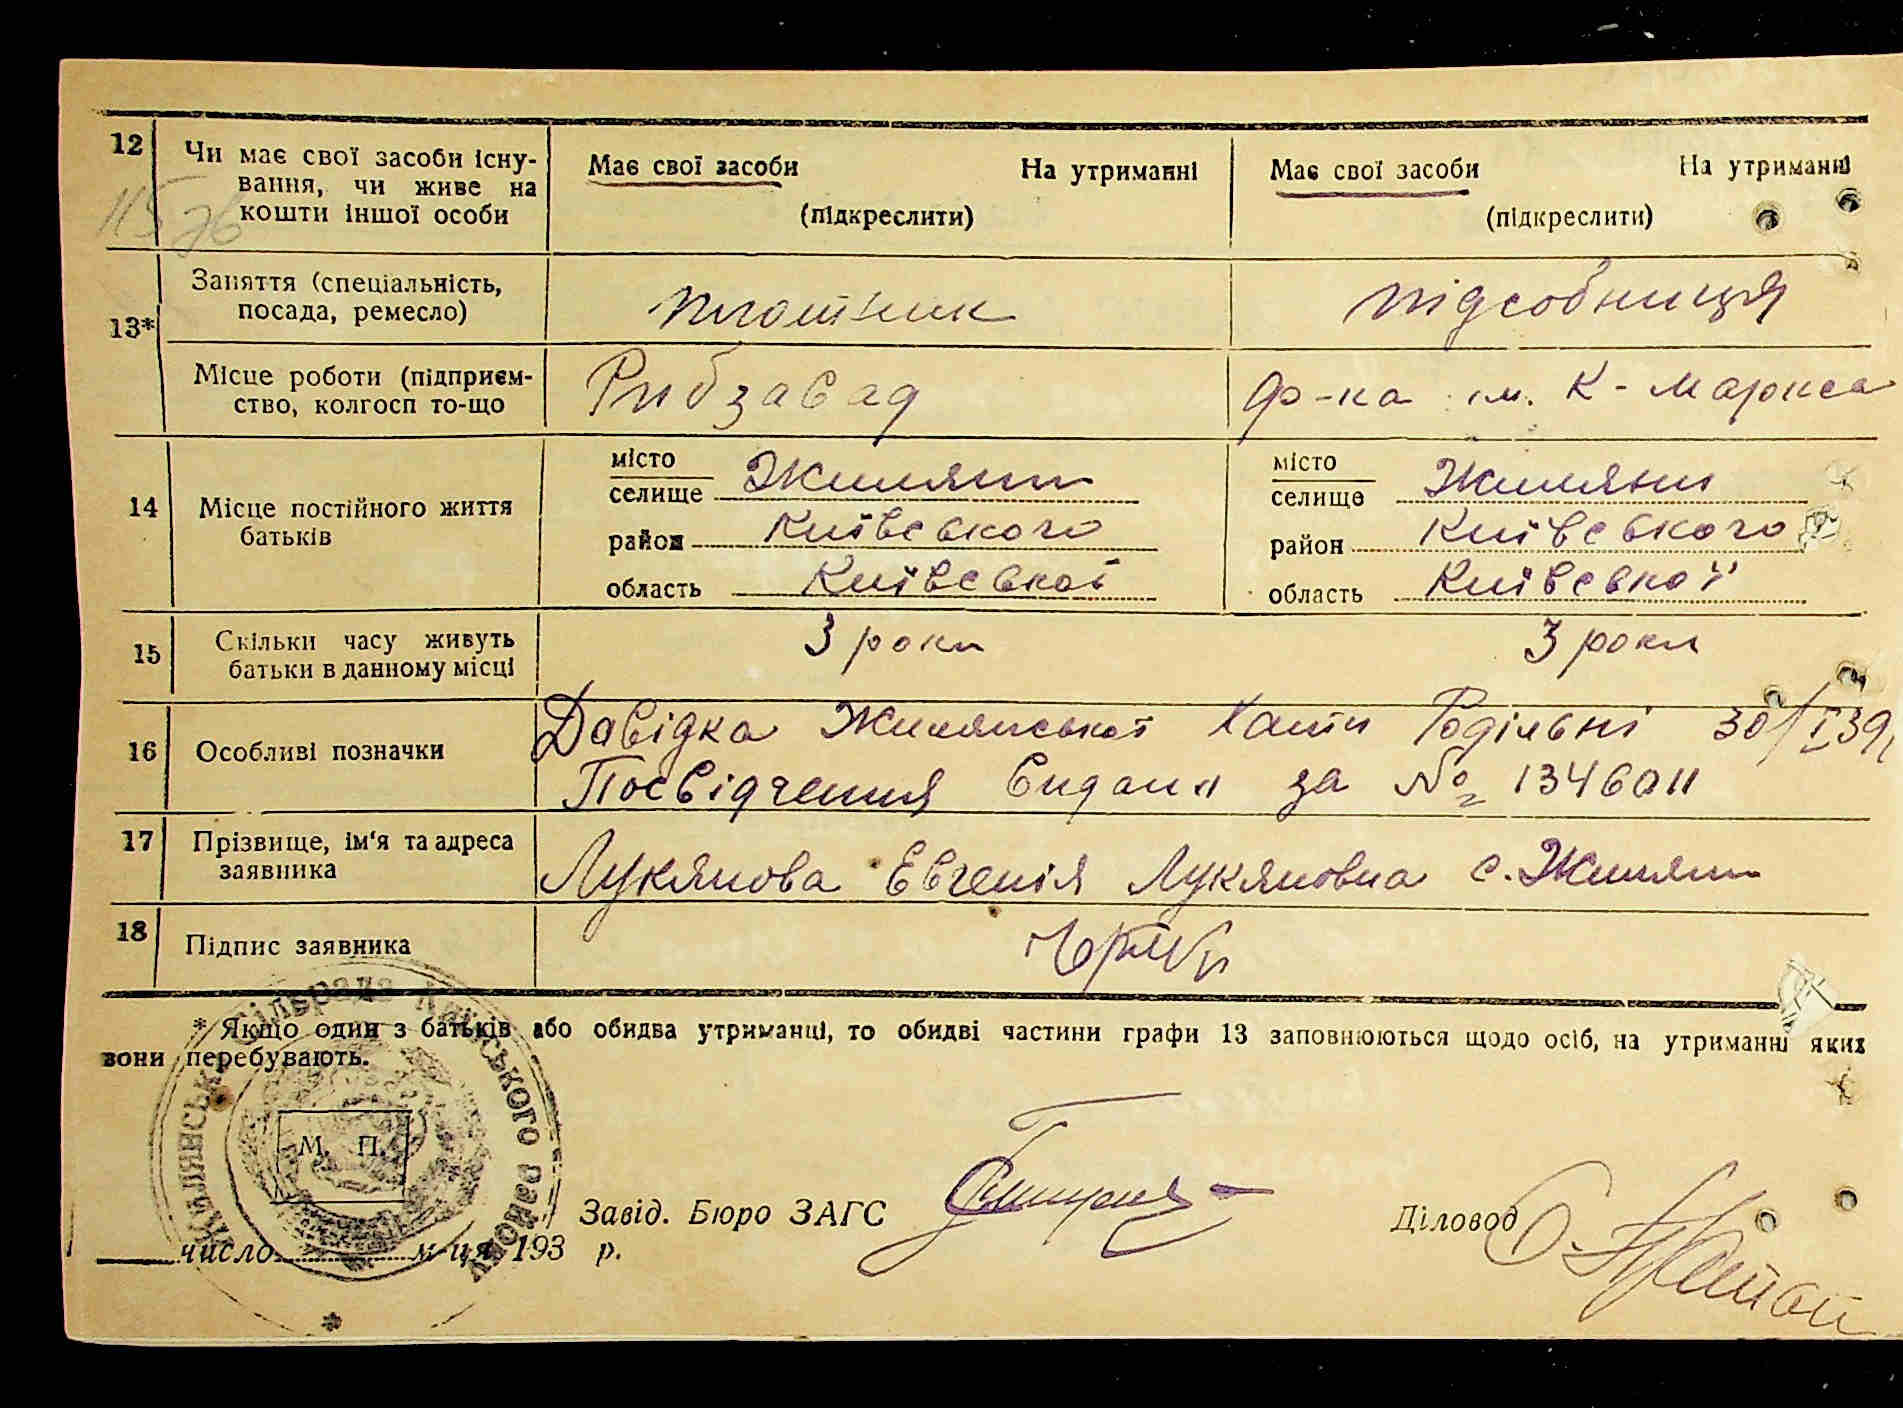 12
Чи має свої засоби існу-
вання, чи живе на
кошти іншої особи
Має свої засоби На утриманні
(підкреслити)
Має свої засоби На утриманні
(підкреслити)
13*
Заняття (спеціальність,
посада, ремесло)
плотник
підсобниця
Місце роботи (підприєм-
ство, колгосп то-що
Рибзавад
ф-ка ім. К-Маркса
14
Місце постійного життя
батьків
місто
селище Жиляни
район Київського
область Київської
місто
селище Жиляни
район Київського
область Київської
15
Скільки часу живуть
батьки в данному місці
3 роки
3 роки
16
Особливі позначки
Давідка Жилянської Хати Родільні 30/I 39
Посвідчення видани за № 1346011
17
Прізвище, ім'я та адреса
заявника
Лукянова Евгенія Лукяновна с. Жиляни
18
Підпис заявника
* Якщо один з батьків або обидва утриманці, то обидві частини графи 13 заповнюються щодо осіб, на утриманні яких
вони перебувають.
Жилянська Сільрада Київського району
М. П.
Завід. Бюро ЗАГС
Діловод
число м-ця 193 р.